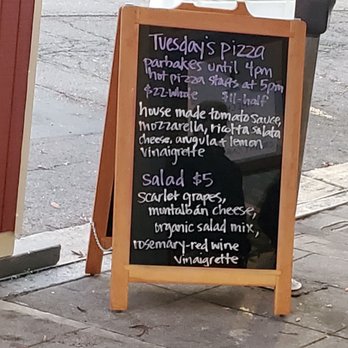 Tuesday's pizza
parbakes until 4pm
hot pizza starts at 5pm
$22-whole $11-half
house made tomato sauce,
mozzarella, ricotta salata
cheese, arugula + lemon
vinaigrette
salad $5
scarlet grapes,
montalban cheese,
organic salad mix,
rosemary-red wine
vinaigrette